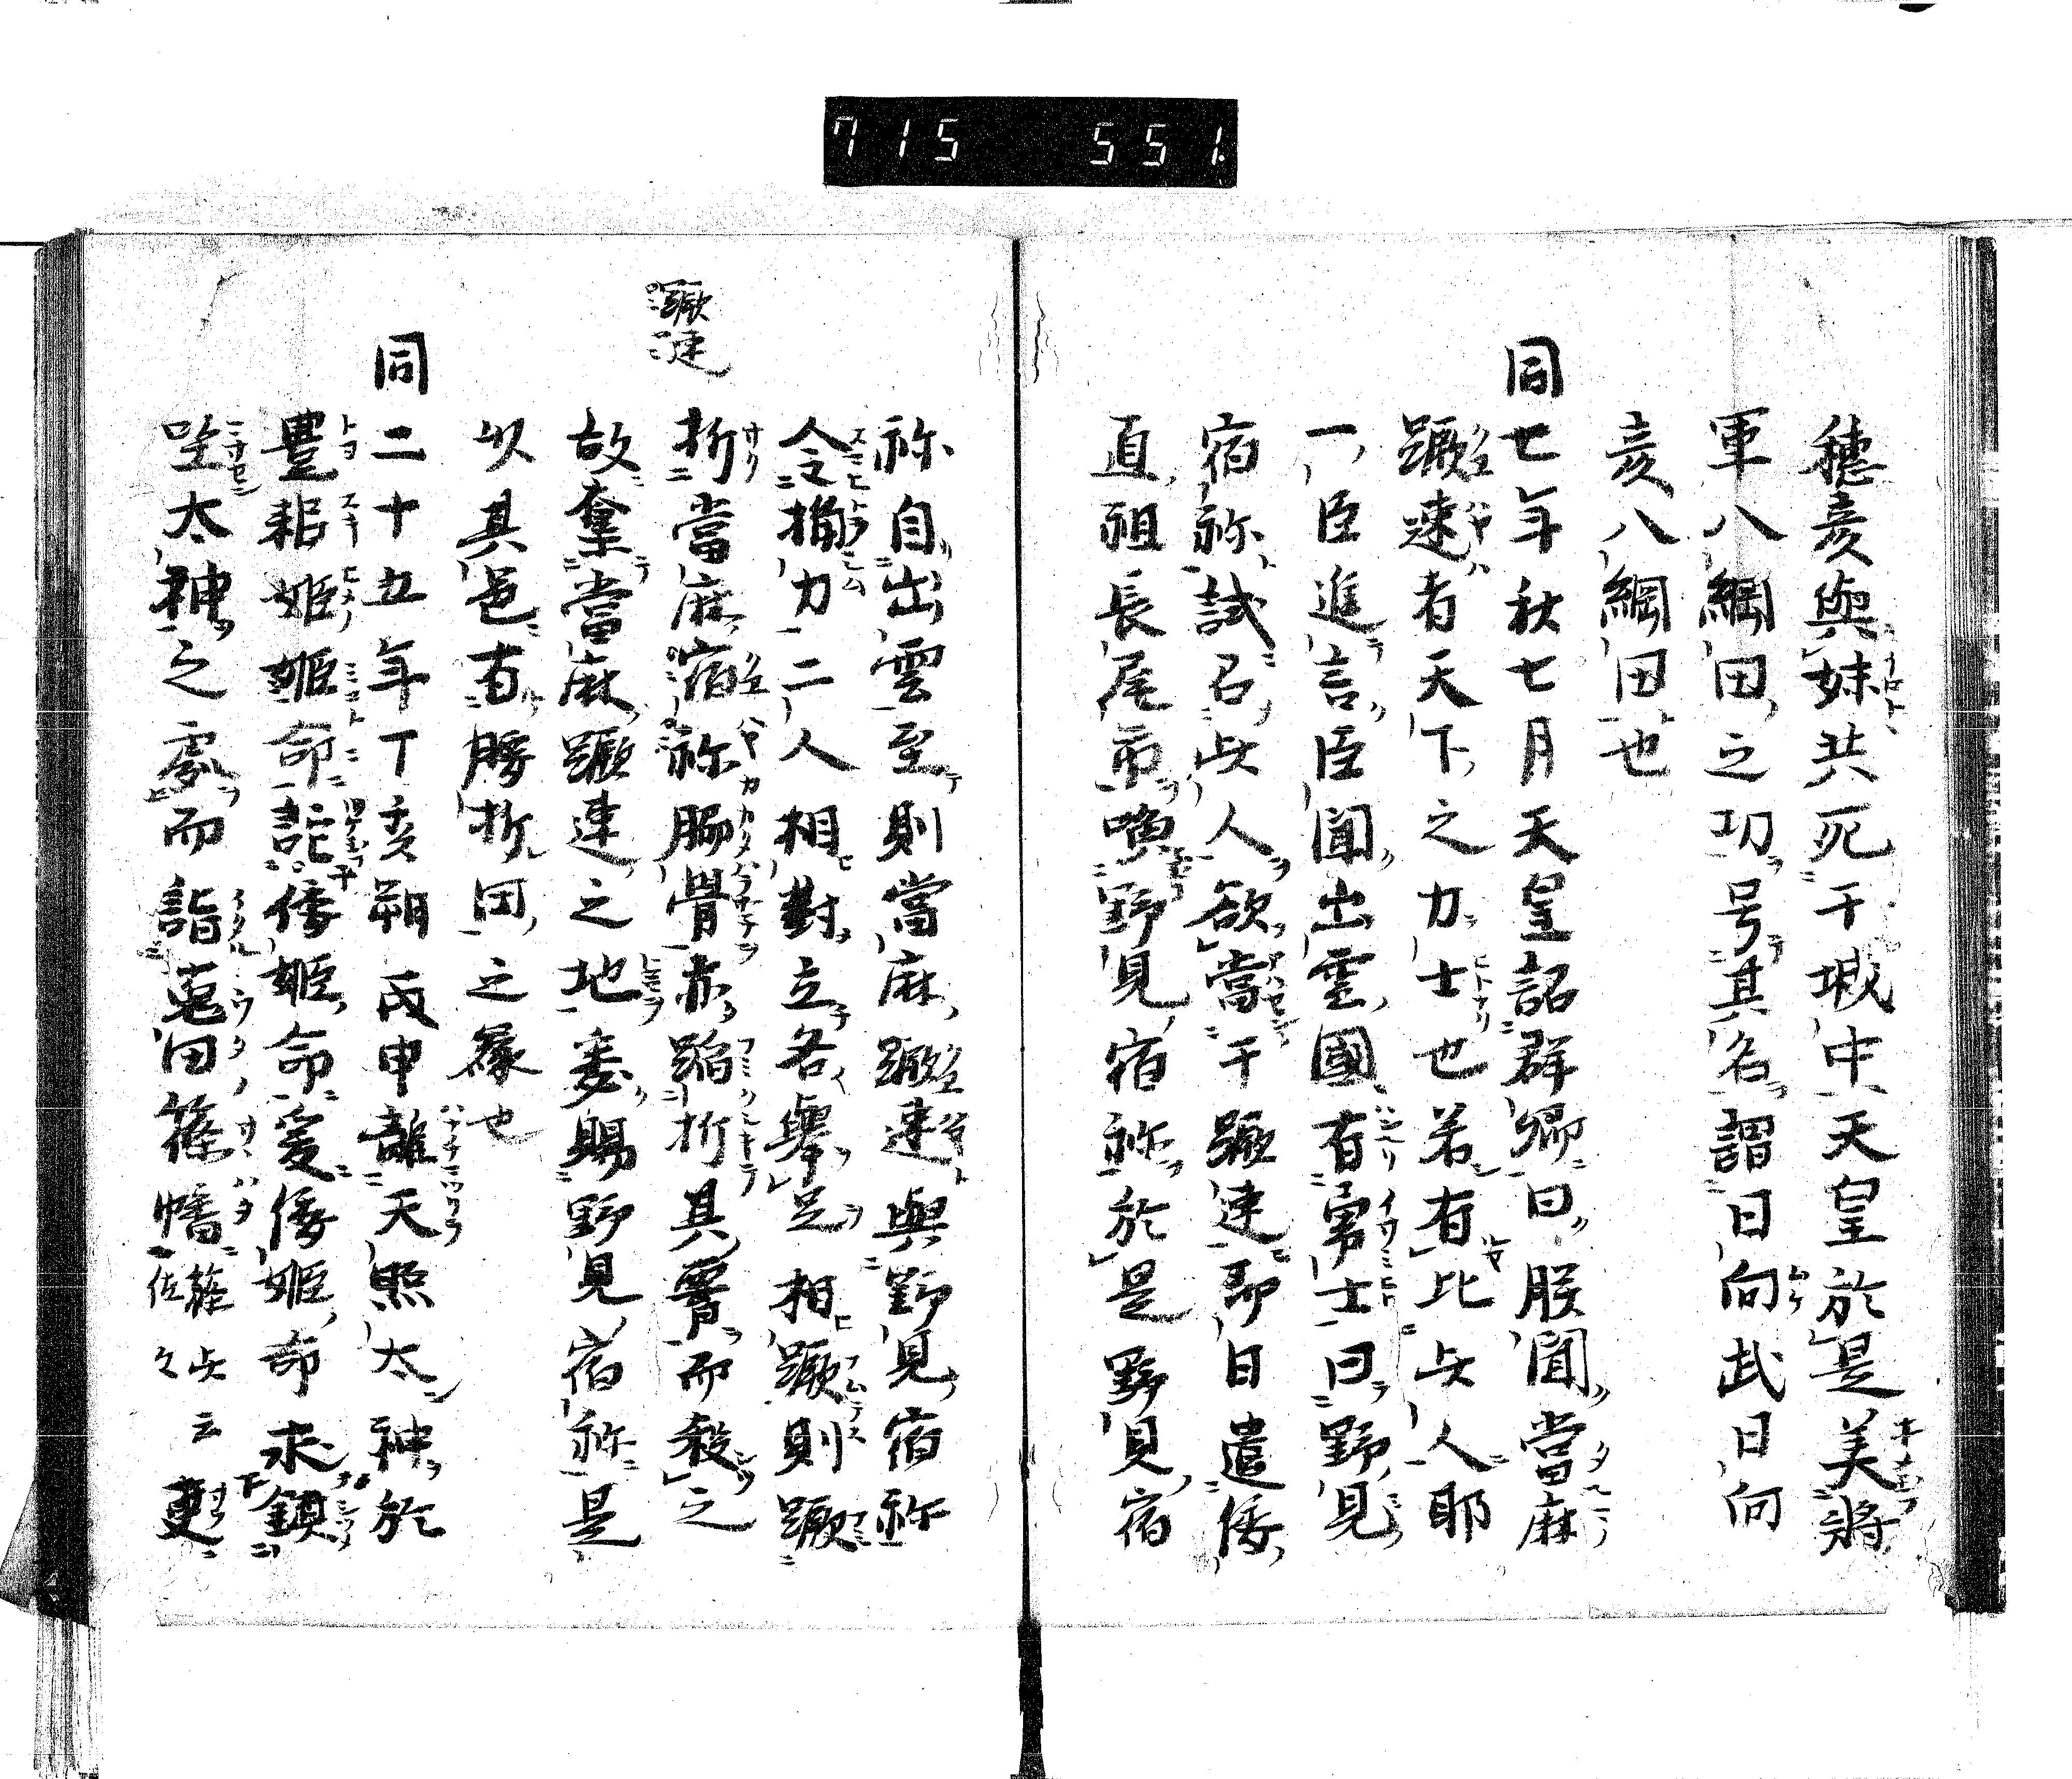 715 551.
穗彦與妹共死于城中天皇於是美將
軍八綱田之功号其名謂日向武日向
彦八綱田也
同七年秋七月天皇詔群卿曰朕聞當麻
蹶速者天下之力士也若有比此人耶
一臣進言臣聞出雲國有勇士曰野見
宿祢試召此人欲當于蹶速即日遣倭
直祖長尾市喚野見宿祢於是野見宿
祢自出雲至則當麻蹶速與野見宿祢
令捔力二人相對立各擧足相蹶則蹶
蹶速
折當麻宿祢脇骨亦蹈折其署而殺之
故奪當麻蹶速之地悉賜野見宿祢是
以其邑有腰折田之縁也
同二十五年丁亥朔丙申離天照太神於
豊耜姫姫命託倭姫命爰倭姫命求鎮
坐太神之處而詣菟田篠幡篠此云佐々更